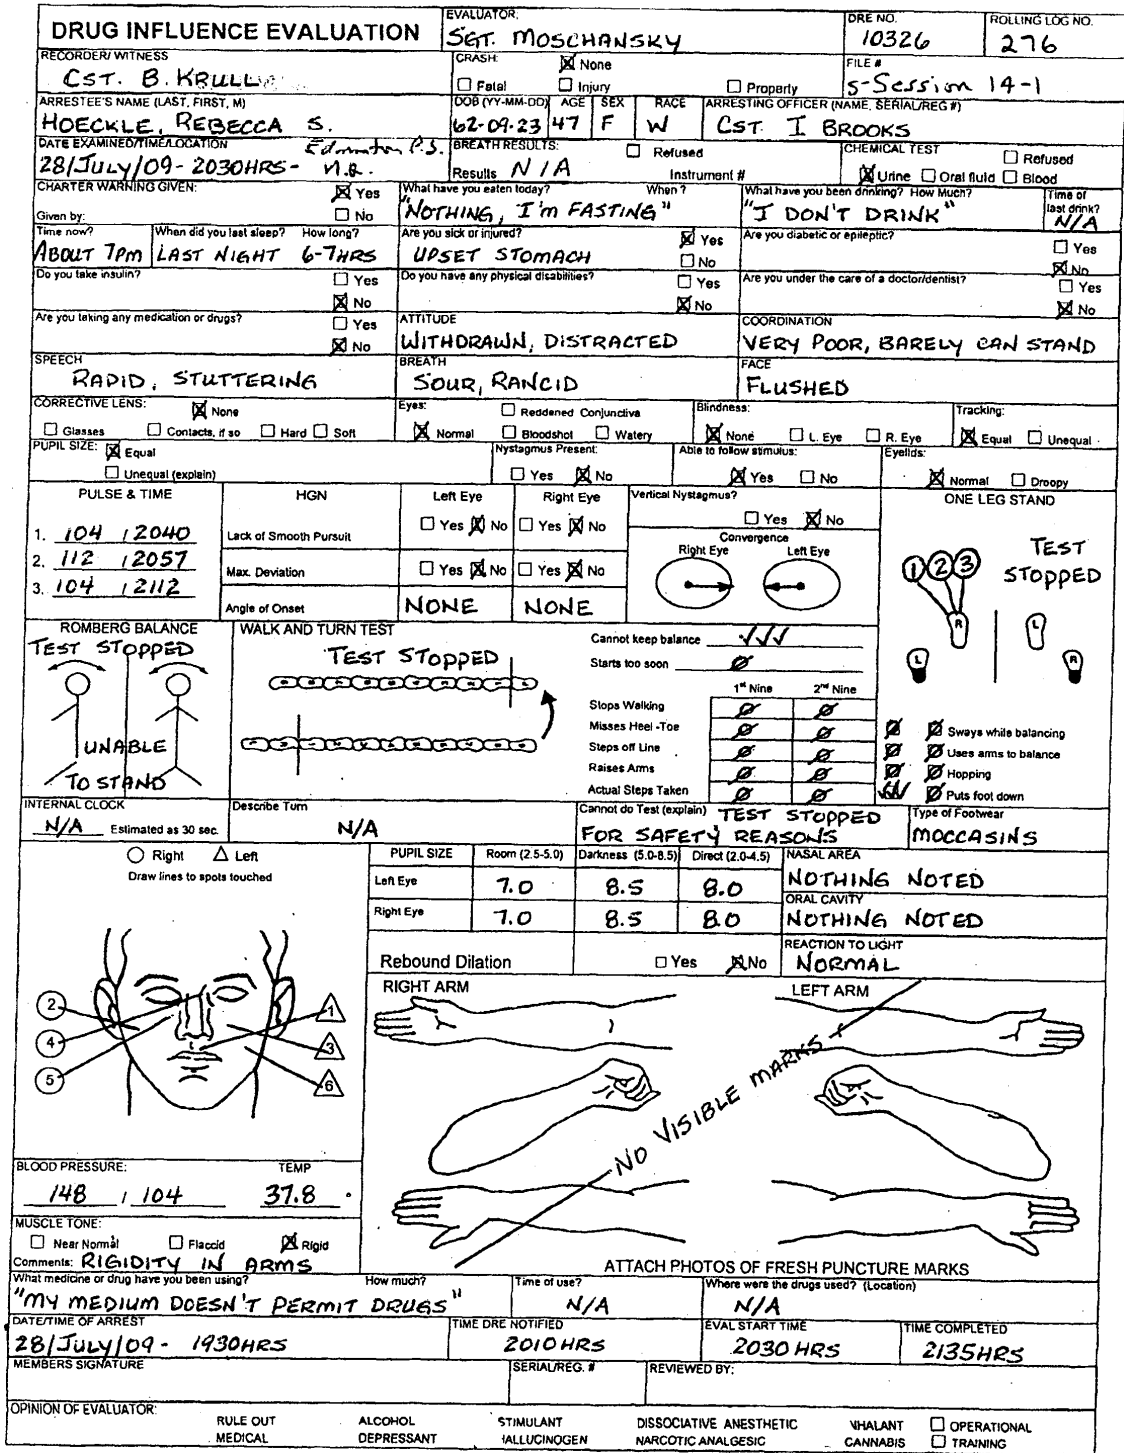 DRUG INFLUENCE EVALUATION
EVALUATOR:
SGT. MOSCHANSKY
DRE NO.
10326
ROLLING LOG NO.
276
RECORDER/WITNESS
CST. B. KRULL
CRASH:
None
Fatal Injury Property
FILE #
5-Session 14-1
ARRESTEE'S NAME (LAST, FIRST, M)
HOECKLE, REBECCA S.
DOB (YY-MM-DD)
62-09-23
AGE
47
SEX
F
RACE
W
ARRESTING OFFICER (NAME, SERIAL/REG #)
CST. I BROOKS
DATE EXAMINED/TIME/LOCATION
Edmonton P.S.
28/JULY/09 - 2030HRS -
BREATH RESULTS:
Refused
Results N/A Instrument #
CHEMICAL TEST
Refused
Urine Oral fluid Blood
CHARTER WARNING GIVEN:
Yes
No
Given by:
What have you eaten today? When?
"NOTHING, I'm FASTING"
What have you been drinking? How Much?
"I DON'T DRINK"
Time of last drink?
N/A
Time now?
ABOUT 7pm
When did you last sleep? How long?
LAST NIGHT 6-7HRS
Are you sick or injured?
Yes
UPSET STOMACH
No
Are you diabetic or epileptic?
Yes
No
Do you take insulin?
Yes
No
Do you have any physical disabilities?
Yes
No
Are you under the care of a doctor/dentist?
Yes
No
Are you taking any medication or drugs?
Yes
No
ATTITUDE
WITHDRAWN, DISTRACTED
COORDINATION
VERY POOR, BARELY CAN STAND
SPEECH
RAPID, STUTTERING
BREATH
SOUR, RANCID
FACE
FLUSHED
CORRECTIVE LENS:
None
Glasses Contacts, if so Hard Soft
Eyes:
Reddened Conjunctiva
Normal Bloodshot Watery
Blindness:
None L. Eye R. Eye
Tracking:
Equal Unequal
PUPIL SIZE: Equal
Unequal (explain)
Nystagmus Present:
Yes No
Able to follow stimulus:
Yes No
Eyelids:
Normal Droopy
PULSE & TIME
1. 104 / 2040
2. 112 / 2057
3. 104 / 2112
HGN Left Eye Right Eye
Lack of Smooth Pursuit Yes No Yes No
Max. Deviation Yes No Yes No
Angle of Onset NONE NONE
Vertical Nystagmus?
Yes No
Convergence
Right Eye Left Eye
ONE LEG STAND
TEST STOPPED
1 2 3
R L
L R
ROMBERG BALANCE
TEST STOPPED
UNABLE
TO STAND
WALK AND TURN TEST
TEST STOPPED
Cannot keep balance
Starts too soon
1st Nine 2nd Nine
Stops Walking
Misses Heel -Toe
Steps off Line
Raises Arms
Actual Steps Taken
Sways while balancing
Uses arms to balance
Hopping
Puts foot down
INTERNAL CLOCK
N/A Estimated as 30 sec.
Describe Turn
N/A
Cannot do Test (explain) TEST STOPPED
FOR SAFETY REASONS
Type of Footwear
MOCCASINS
Right Left
Draw lines to spots touched
2
4
5
1
3
6
PUPIL SIZE Room (2.5-5.0) Darkness (5.0-8.5) Direct (2.0-4.5)
Left Eye 7.0 8.5 8.0
Right Eye 7.0 8.5 8.0
NASAL AREA
NOTHING NOTED
ORAL CAVITY
NOTHING NOTED
Rebound Dilation Yes No
REACTION TO LIGHT
NORMAL
RIGHT ARM LEFT ARM
NO VISIBLE MARKS
ATTACH PHOTOS OF FRESH PUNCTURE MARKS
BLOOD PRESSURE: TEMP
148 / 104 37.8
MUSCLE TONE:
Near Normal Flaccid Rigid
Comments: RIGIDITY IN ARMS
What medicine or drug have you been using? How much?
"MY MEDIUM DOESN'T PERMIT DRUGS"
Time of use?
N/A
Where were the drugs used? (Location)
N/A
DATE/TIME OF ARREST
28/JULY/09 - 1930HRS
TIME DRE NOTIFIED
2010HRS
EVAL START TIME
2030 HRS
TIME COMPLETED
2135HRS
MEMBERS SIGNATURE
SERIAL/REG. #
REVIEWED BY:
OPINION OF EVALUATOR:
RULE OUT ALCOHOL STIMULANT DISSOCIATIVE ANESTHETIC INHALANT OPERATIONAL
MEDICAL DEPRESSANT HALLUCINOGEN NARCOTIC ANALGESIC CANNABIS TRAINING